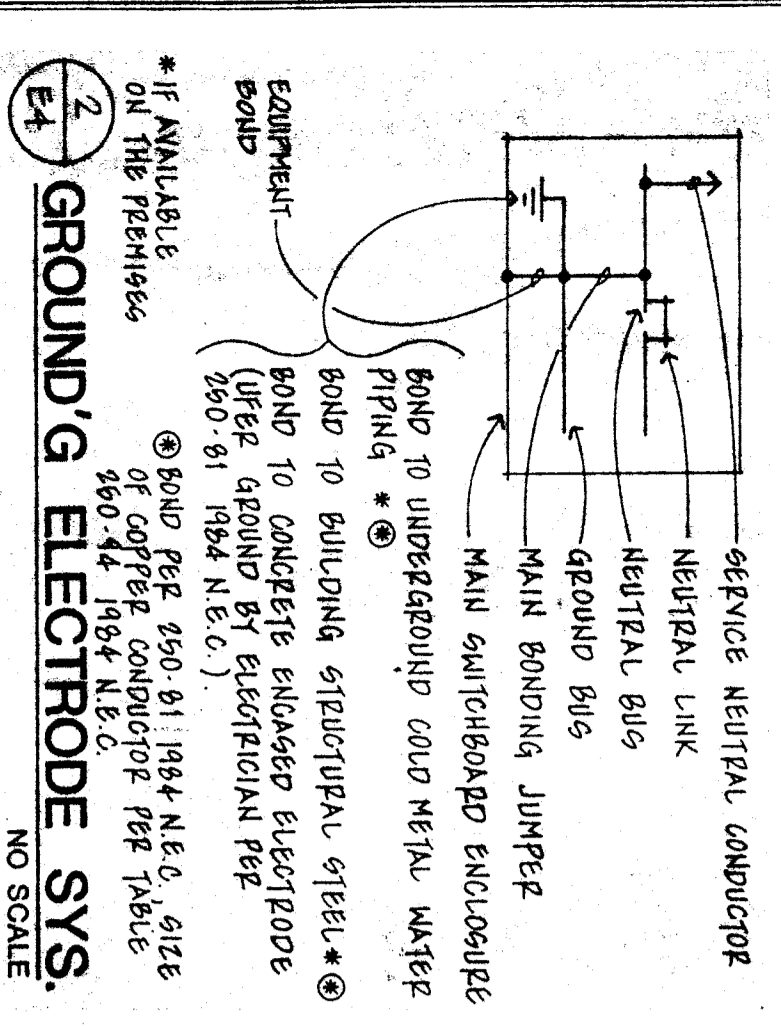 SERVICE NEUTRAL CONDUCTOR
NEUTRAL LINK
NEUTRAL BUS
GROUND BUS
MAIN BONDING JUMPER
MAIN SWITCHBOARD ENCLOSURE
EQUIPMENT
BOND
BOND TO UNDERGROUND COLD METAL WATER
PIPING * ⊛
BOND TO BUILDING STRUCTURAL STEEL * ⊛
BOND TO CONCRETE ENCASED ELECTRODE
(UFER GROUND BY ELECTRICIAN PER
250-81 1984 N.E.C.).
* IF AVAILABLE
ON THE PREMISES
⊛ BOND PER 250-81 1984 N.E.C., SIZE
OF COPPER CONDUCTOR PER TABLE
250-94 1984 N.E.C.
2
E4
GROUND'G ELECTRODE SYS.
NO SCALE